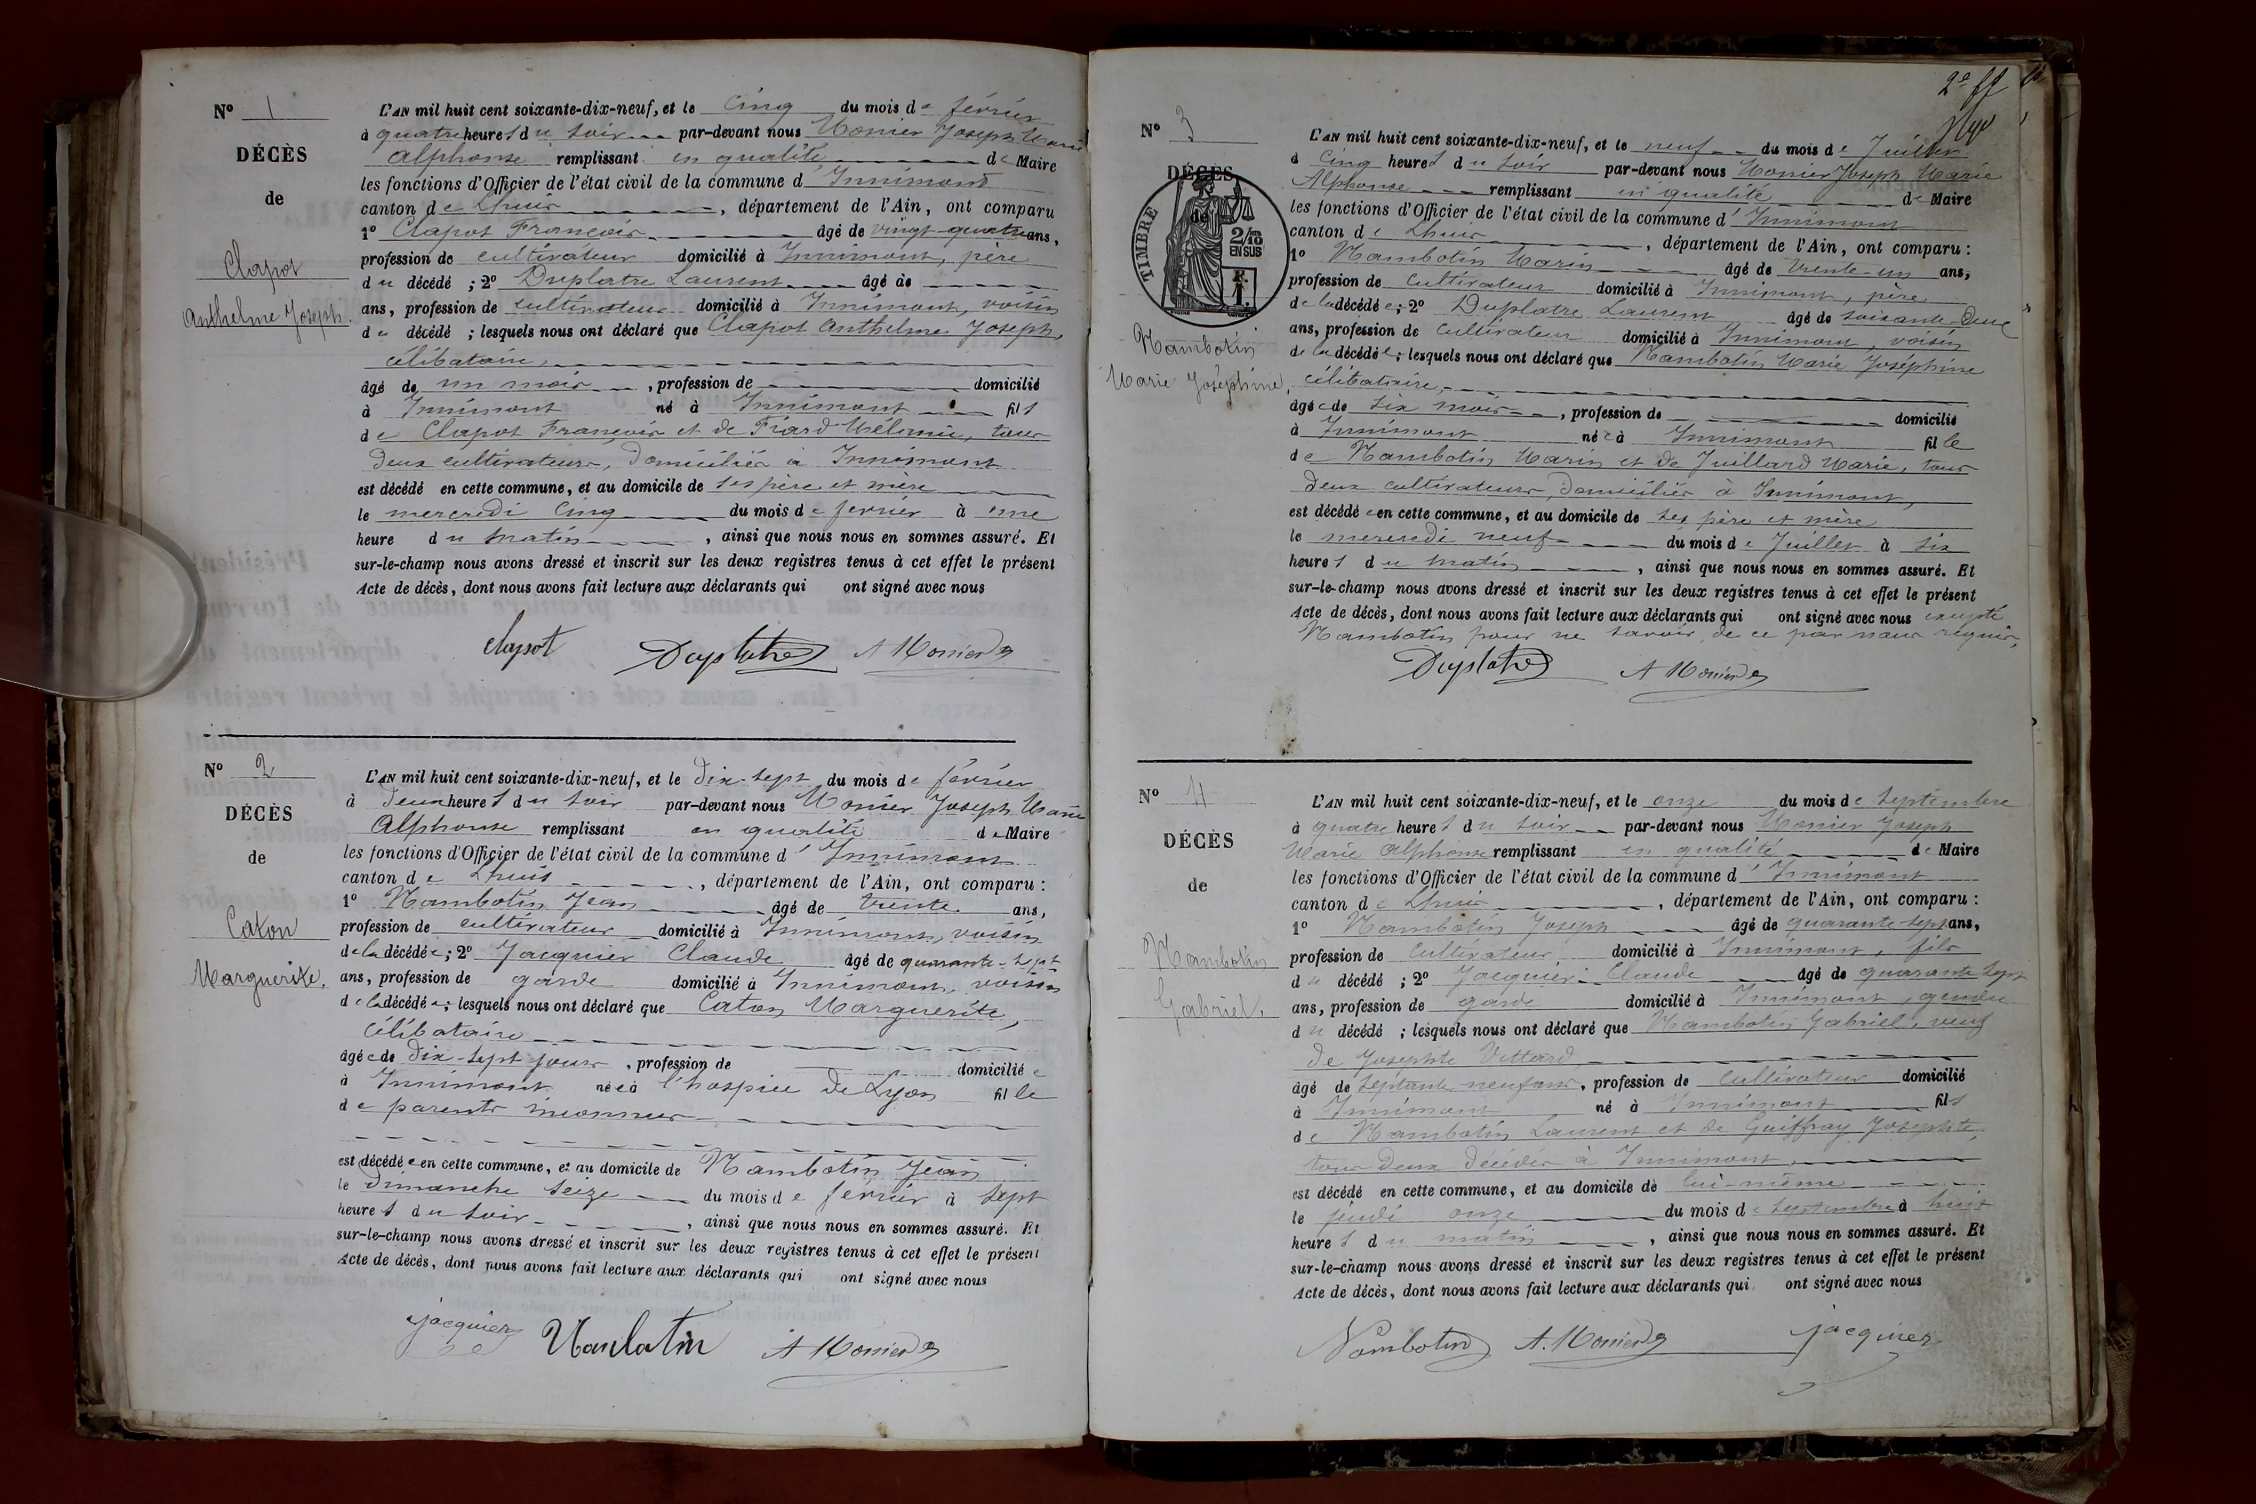 N° 1
DÉCÈS
de
Clapot
Anthelme Joseph.
L'AN mil huit cent soixante-dix-neuf, et le cinq du mois de février
à quatre heures du soir par-devant nous Monier Joseph Marie
Alphonse remplissant en qualité de Maire
les fonctions d'Officier de l'état civil de la commune d'Innimont
canton de Lhuis, département de l'Ain, ont comparu
1° Clapot François âgé de vingt-quatre ans,
profession de cultivateur domicilié à Innimont, père
du décédé ; 2° Duplatre Laurent âgé de
ans, profession de cultivateur domicilié à Innimont, voisin
du décédé ; lesquels nous ont déclaré que Clapot Anthelme Joseph,
célibataire,
âgé de un mois, profession de domicilié
à Innimont né à Innimont fils
de Clapot François et de Frard Mélanie, tous
deux cultivateurs, domiciliés à Innimont
est décédé en cette commune, et au domicile de ses père et mère
le mercredi cinq du mois de février à une
heure du matin, ainsi que nous nous en sommes assuré. Et
sur-le-champ nous avons dressé et inscrit sur les deux registres tenus à cet effet le présent
Acte de décès, dont nous avons fait lecture aux déclarants qui ont signé avec nous
Clapot Duplatre A Monier
N° 2
DÉCÈS
de
Caton
Marguerite.
L'AN mil huit cent soixante-dix-neuf, et le dix-sept du mois de février
à deux heures du soir par-devant nous Monier Joseph Marie
Alphonse remplissant en qualité de Maire
les fonctions d'Officier de l'état civil de la commune d'Innimont
canton de Lhuis, département de l'Ain, ont comparu :
1° Nambotin Jean âgé de trente ans,
profession de cultivateur domicilié à Innimont, voisin
de la décédée ; 2° Jacquier Claude âgé de quarante-sept
ans, profession de garde domicilié à Innimont, voisin
de la décédée ; lesquels nous ont déclaré que Caton Marguerite,
célibataire
âgée de dix-sept jours, profession de domiciliée
à Innimont née à l'hospice de Lyon fille
de parents inconnus
est décédée en cette commune, et au domicile de Nambotin Jean
le dimanche seize du mois de février à sept
heures du soir, ainsi que nous nous en sommes assuré. Et
sur-le-champ nous avons dressé et inscrit sur les deux registres tenus à cet effet le présent
Acte de décès, dont nous avons fait lecture aux déclarants qui ont signé avec nous
jacquier A Monier
2e ff
N° 3
DÉCÈS
de
TIMBRE
2/10
EN SUS
F.
1.
Nambotin
Marie Joséphine,
L'AN mil huit cent soixante-dix-neuf, et le neuf du mois de Juillet
à cinq heures du soir par-devant nous Monier Joseph Marie
Alphonse remplissant en qualité de Maire
les fonctions d'Officier de l'état civil de la commune d'Innimont
canton de Lhuis, département de l'Ain, ont comparu :
1° Nambotin Marin âgé de trente-un ans,
profession de cultivateur domicilié à Innimont, père
de la décédée ; 2° Duplatre Laurent âgé de soixante-deux
ans, profession de cultivateur domicilié à Innimont, voisin
de la décédée ; lesquels nous ont déclaré que Nambotin Marie Joséphine
célibataire,
âgée de six mois, profession de domicilié
à Innimont née à Innimont fille
de Nambotin Marin et de Juillard Marie, tous
deux cultivateurs, domiciliés à Innimont,
est décédée en cette commune, et au domicile de ses père et mère
le mercredi neuf du mois de Juillet à six
heures du matin, ainsi que nous nous en sommes assuré. Et
sur-le-champ nous avons dressé et inscrit sur les deux registres tenus à cet effet le présent
Acte de décès, dont nous avons fait lecture aux déclarants qui ont signé avec nous excepté
Nambotin pour ne savoir, de ce par nous requis,
Duplatre A Monier
N° 4
DÉCÈS
de
Nambotin
Gabriel.
L'AN mil huit cent soixante-dix-neuf, et le onze du mois de septembre
à quatre heures du soir par-devant nous Monier Joseph
Marie Alphonse remplissant en qualité de Maire
les fonctions d'Officier de l'état civil de la commune d'Innimont
canton de Lhuis, département de l'Ain, ont comparu :
1° Nambotin Joseph âgé de quarante-sept ans,
profession de cultivateur domicilié à Innimont, fils
du décédé ; 2° Jacquier Claude âgé de quarante sept
ans, profession de garde domicilié à Innimont, gendre
du décédé ; lesquels nous ont déclaré que Nambotin Gabriel, veuf
de Josephte Vettard
âgé de septante neuf ans, profession de cultivateur domicilié
à Innimont né à Innimont fils
de Nambotin Laurent et de Guiffray Josephte,
tous deux décédés à Innimont,
est décédé en cette commune, et au domicile de lui-même
le jeudi onze du mois de septembre à huit
heures du matin, ainsi que nous nous en sommes assuré. Et
sur-le-champ nous avons dressé et inscrit sur les deux registres tenus à cet effet le présent
Acte de décès, dont nous avons fait lecture aux déclarants qui ont signé avec nous
Nambotin A. Monier jacquier